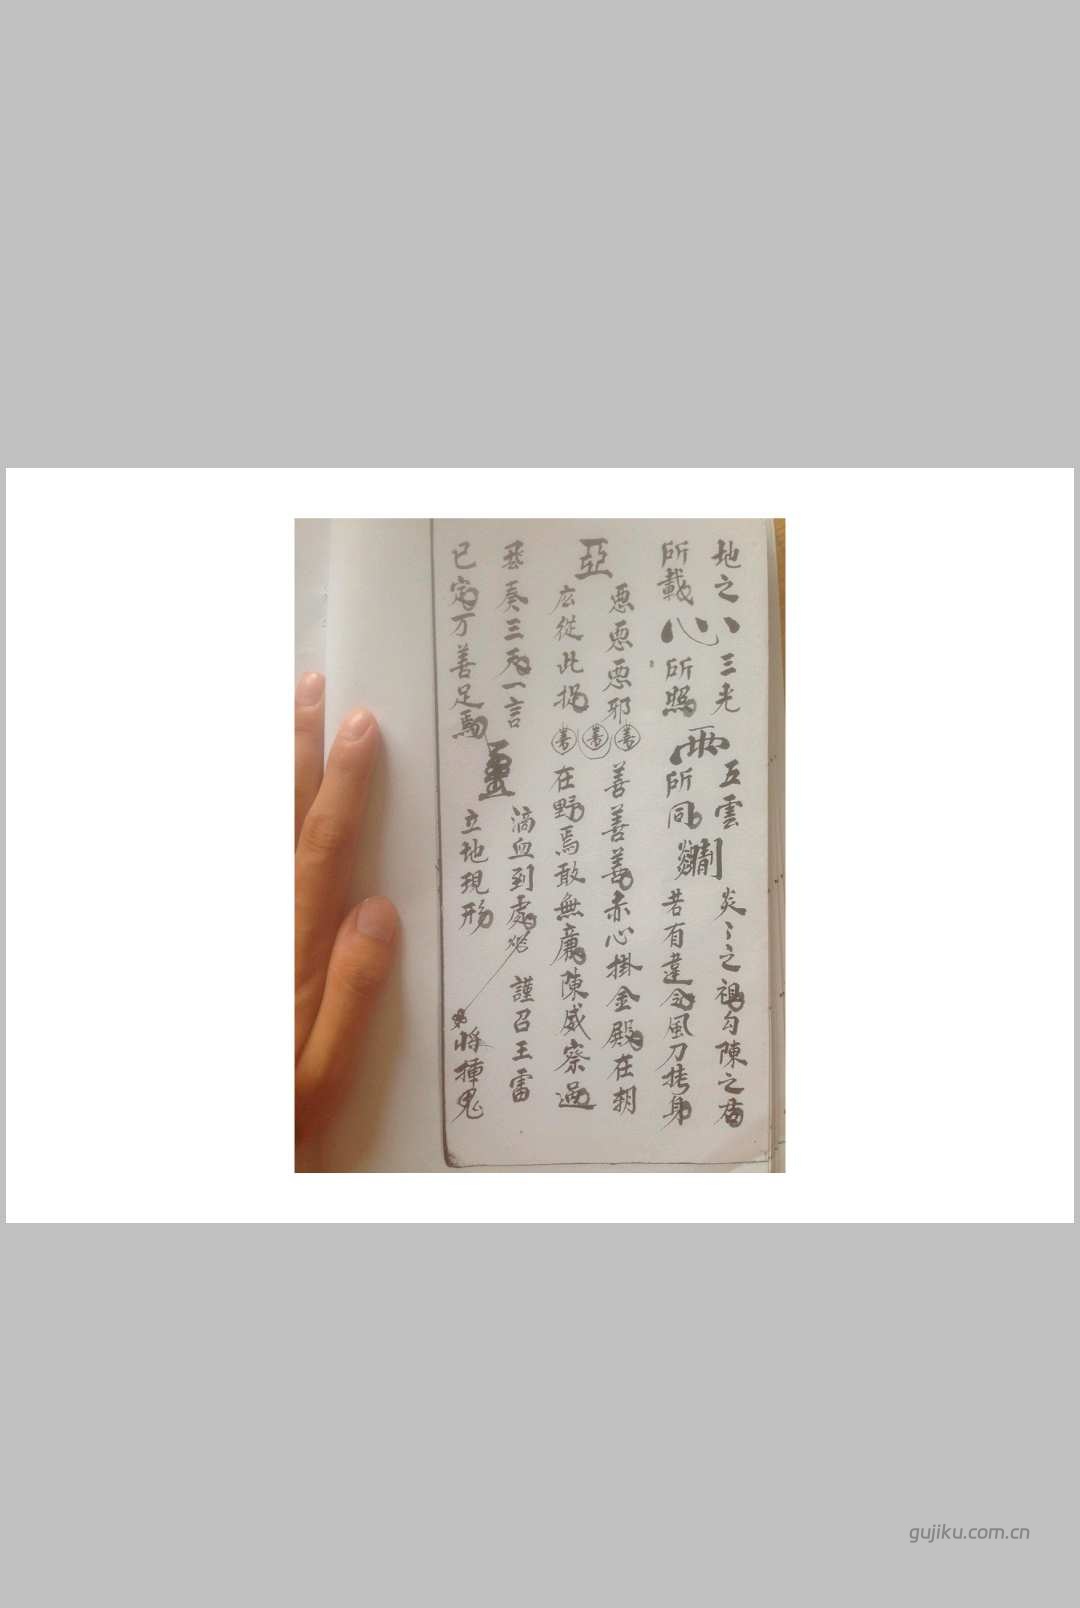 地之
所載
心
三光
所照
雨
五雲
所同
炎〻之祖勾陳之君
若有違令風刀拷身
亞
惡惡惡邪
広從此捉
善善善
善善善赤心掛金殿在朝
在野焉敢無廉陳威察過
奏三天一言
已定万善足焉
滴血到處
立地現形
謹召王雷
將捶鬼
gujiku.com.cn